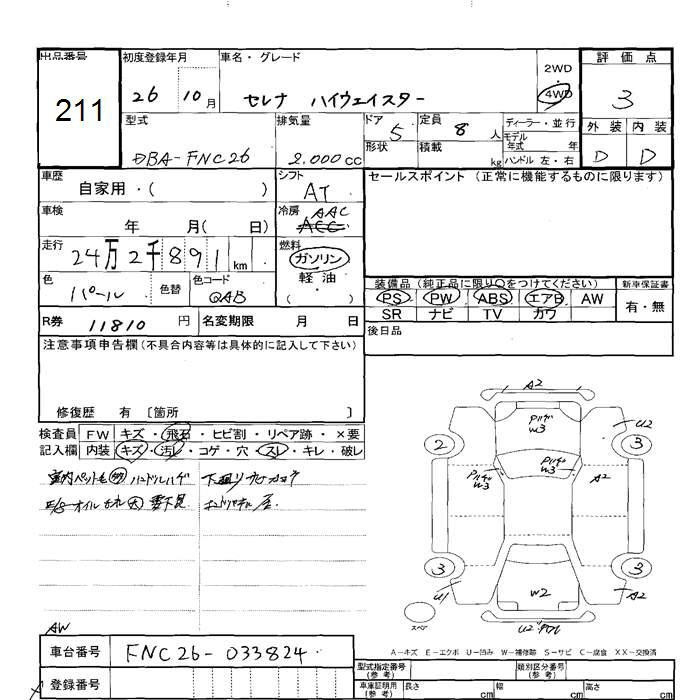 出品番号 211
初度登録年月 26 10月
車名・グレード セレナ ハイウェイスター
2WD・4WD
評価点 3
外装 D 内装 D
型式 DBA-FNC26
排気量 2.000cc
ドア 5
形状
定員 8人
積載 kg
ディーラー・並行
モデル年式 年
ハンドル 左・右
車歴 自家用・( )
シフト AT
セールスポイント (正常に機能するものに限ります)
車検 年 月( 日)
冷房 AAC ACC
走行 24万2千891km
燃料 ガソリン・軽油・( )
色 パール
色替
色コード QAB
装備品 (純正品に限り○をつけてください)
PS PW ABS エアB AW
SR ナビ TV カワ
新車保証書 有・無
R券 11810円
名変期限 月 日
後日品
注意事項申告欄(不具合内容等は具体的に記入して下さい)
修復歴 有 〔箇所 〕
検査員記入欄
FW キズ・飛石・ヒビ割・リペア跡・×要
内装 キズ・汚レ・コゲ・穴・スレ・キレ・破レ
室内ペット毛 ハンドルハゲ
E/Gオイルモレ 大
A2
U2
2
3
W3
W3
W3
A2
3
3
U1
A2
W2
U2
スペア
A-キズ E-エクボ U-凹み W-補修跡 S-サビ C-腐食 XX-交換済
AW
車台番号 FNC26-033824
登録番号
型式指定番号(参考)
類別区分番号(参考)
車庫証明用(参考) 長さ cm 幅 cm 高さ cm